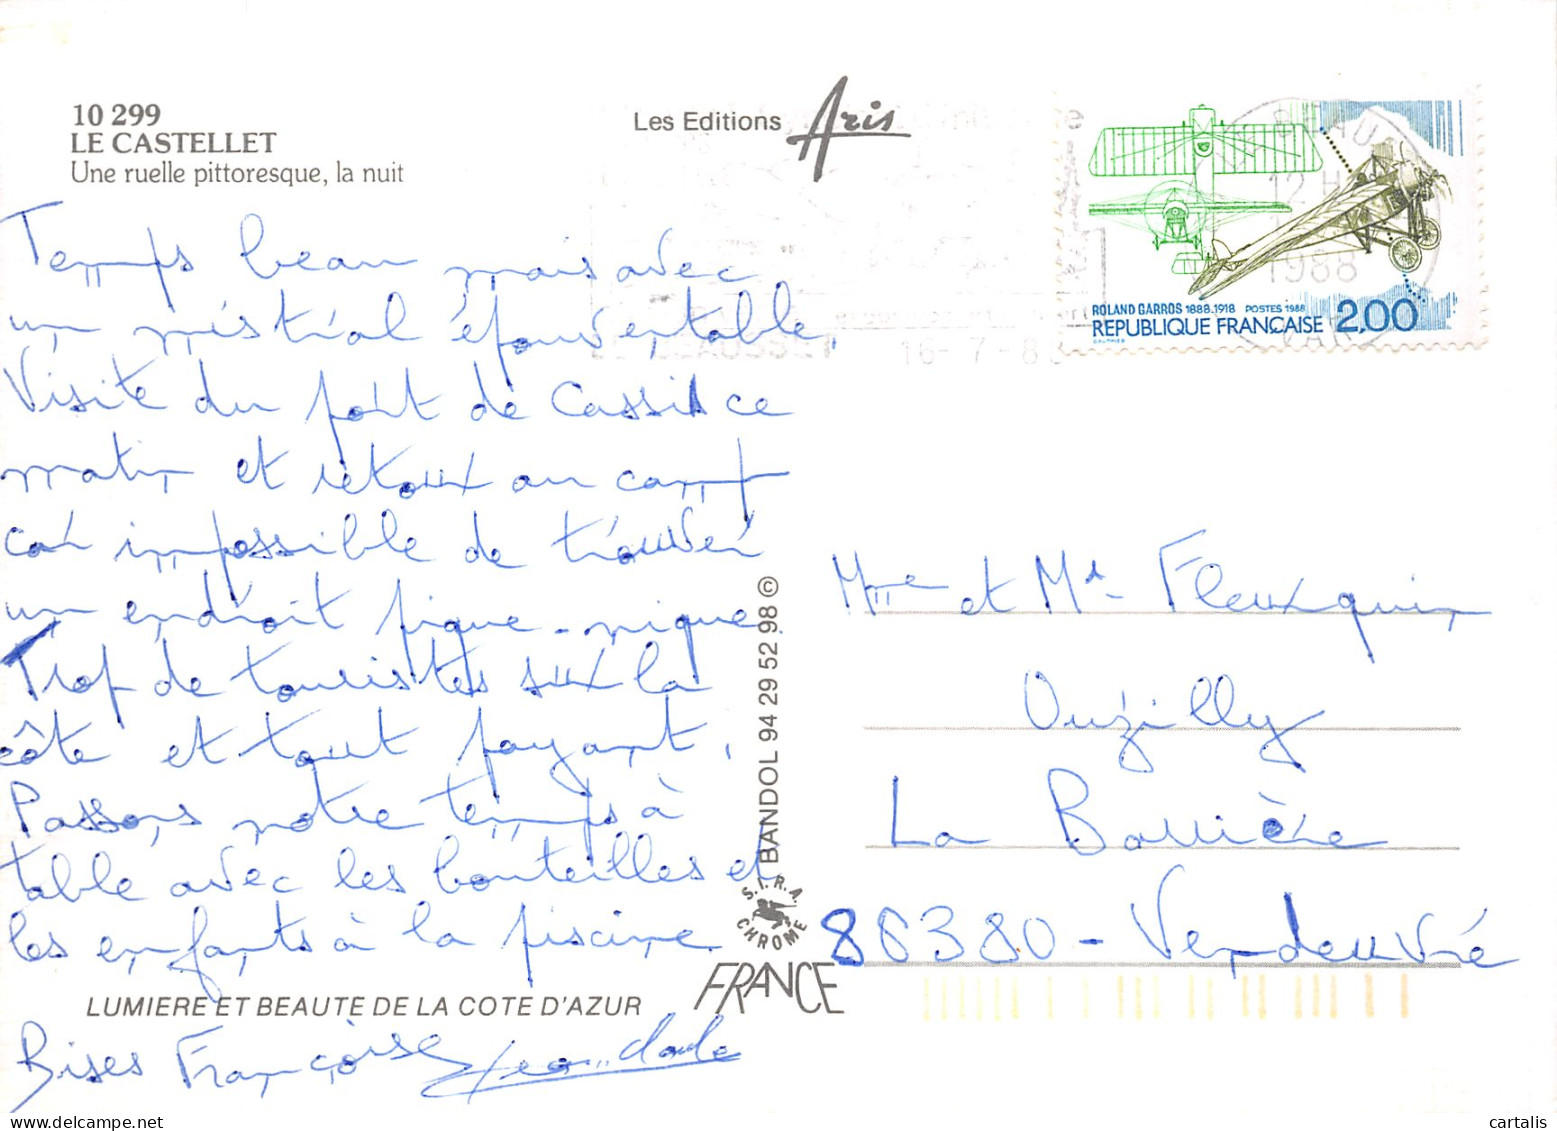 10 299
LE CASTELLET
Une ruelle pittoresque, la nuit
Les Editions Aris
ROLAND GARROS 1888.1918 POSTES 1988
REPUBLIQUE FRANÇAISE 2,00
GAUTHIER
12 H
1988
VAR
LE BEAUSSET 16-7-88
Temps beau mais avec
un mistral épouventable.
Visite du port de Cassis ce
matin et retour au camp
car impossible de trouver
un endroit pique-nique.
Trop de touristes sur la
côte et tout payant.
Passons notre temps à
table avec les bouteilles et
les enfants à la piscine.
Bises Françoise Jean-claude
LUMIERE ET BEAUTE DE LA COTE D'AZUR
BANDOL 94 29 52 98 ©
S.I.R.A.
CHROME
FRANCE
Mme et Mr Fleurquin
Ouzilly
La Barrière
86380 - Vendeuvre
cartalis